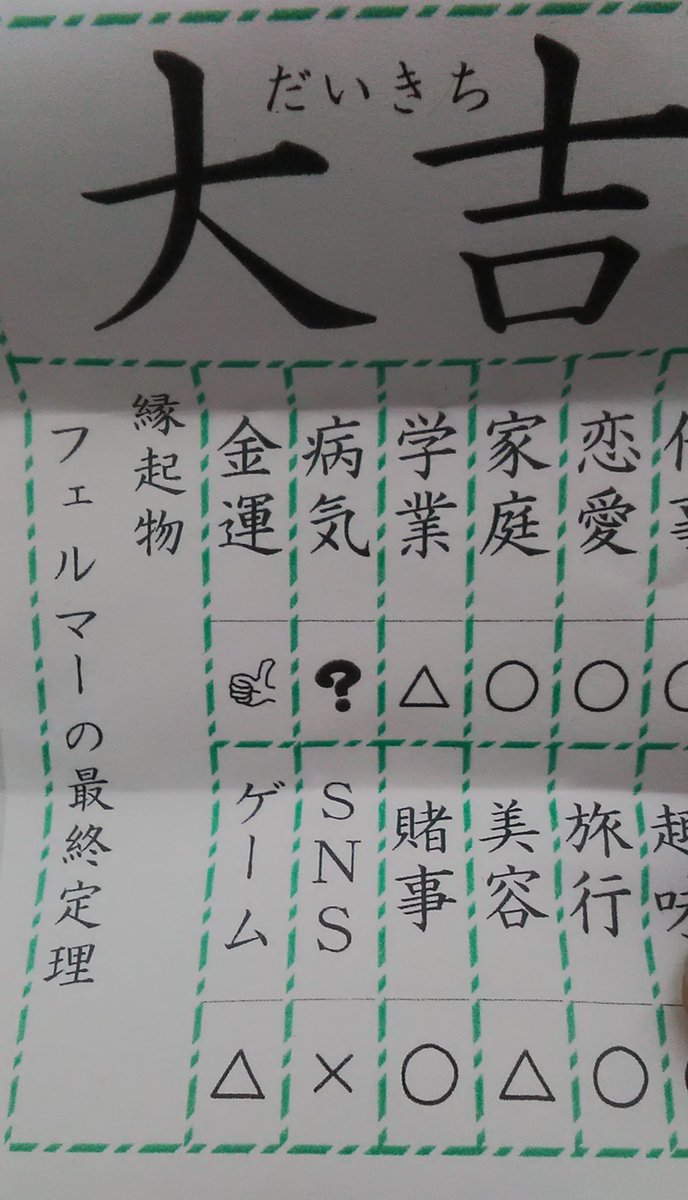 だいきち
大吉
恋愛 ○
家庭 ○
学業 △
病気 ?
金運
旅行 ○
美容 △
賭事 ○
SNS ×
ゲーム △
縁起物
フェルマーの最終定理